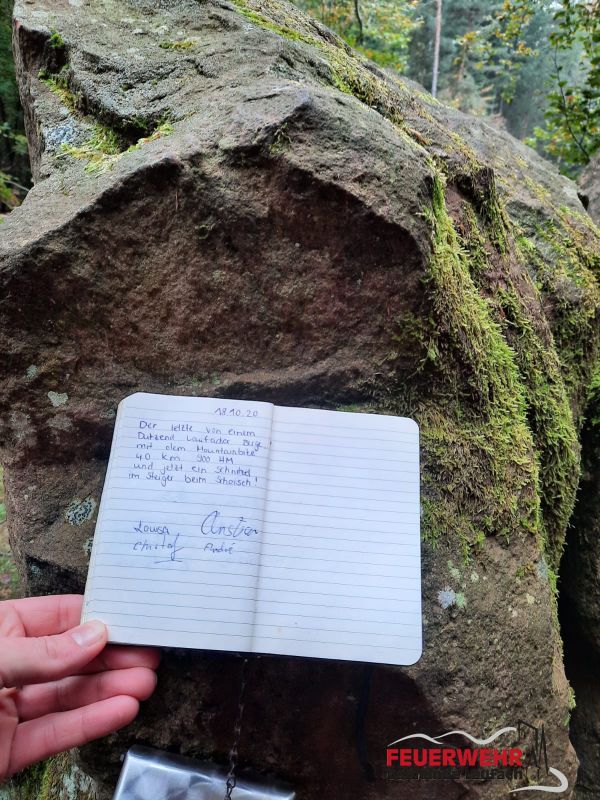 18.10.20
Der letzte von einem
Dutzend Laufacher Berge!
mit dem Mountainbike
40 km 900 HM
und jetzt ein Schnitzel
im Steiger beim Schoisch!
Louisa Christian
Christof André
FEUERWEHR